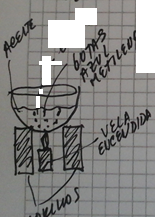 ACEITE
GOTAS
AZUL
METILENO
VELA
ENCENDIDA